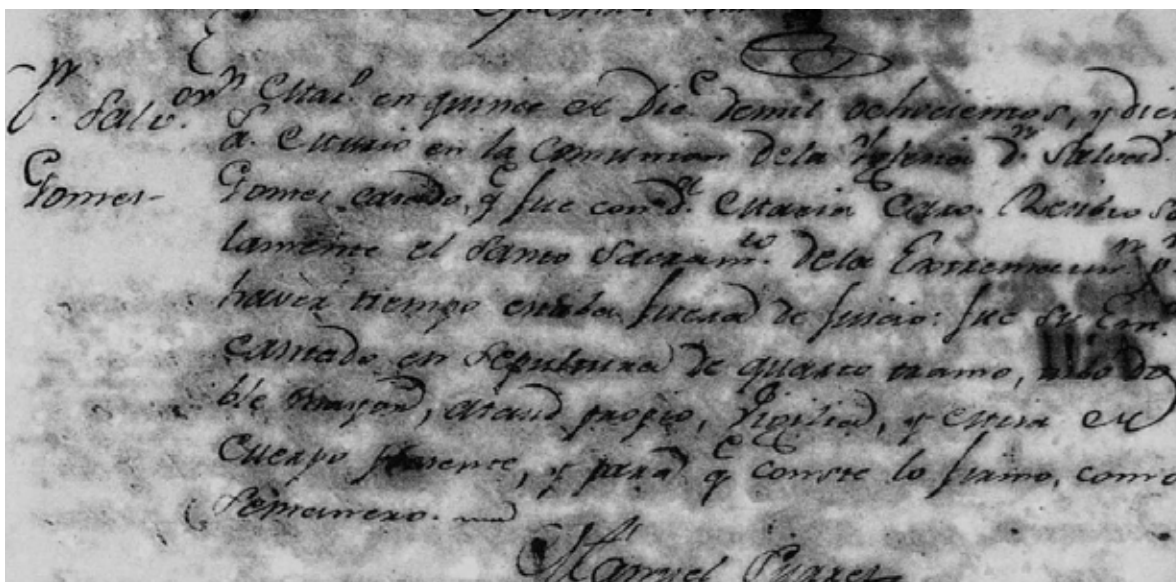 Dn. Salv.or
Gomes
en quince de Dic.e de mil ochocientos, y die
a. Murio en la comunion de la Yglesia Dn. Salvad.
Gomes casado, q.e fue con d.a Maria Caro. Recibio so
lamente el Santo Sacram.to de la Extremauncn. p.r
haver tiempo estaba fuera de juicio: fue su En.
cantado en Sepultura de quarto tramo, do
ble mayor, ataud propio, Vigilia, y Misa de
Cuerpo presente, y para q.e conste lo firmo, como
Semanero.
Manuel Suares